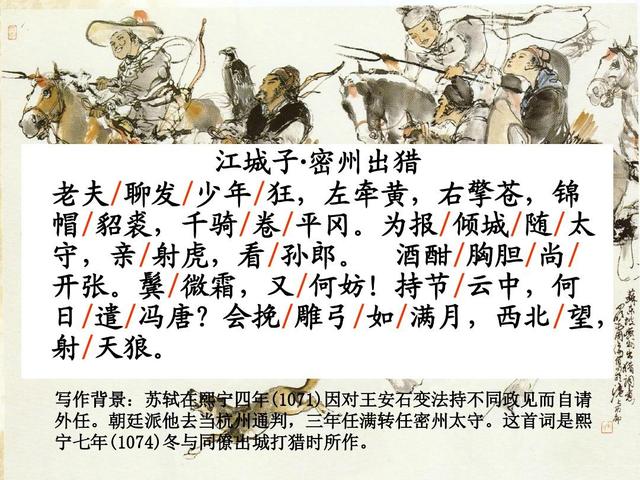 江城子·密州出猎
老夫/聊发/少年/狂，左牵黄，右擎苍，锦
帽/貂裘，千骑/卷/平冈。为报/倾城/随/太
守，亲/射虎，看/孙郎。　酒酣/胸胆/尚/
开张。鬓/微霜，又/何妨！持节/云中，何
日/遣/冯唐？会挽/雕弓/如/满月，西北/望，
射/天狼。
写作背景：苏轼在熙宁四年(1071)因对王安石变法持不同政见而自请
外任。朝廷派他去当杭州通判，三年任满转任密州太守。这首词是熙
宁七年(1074)冬与同僚出城打猎时所作。